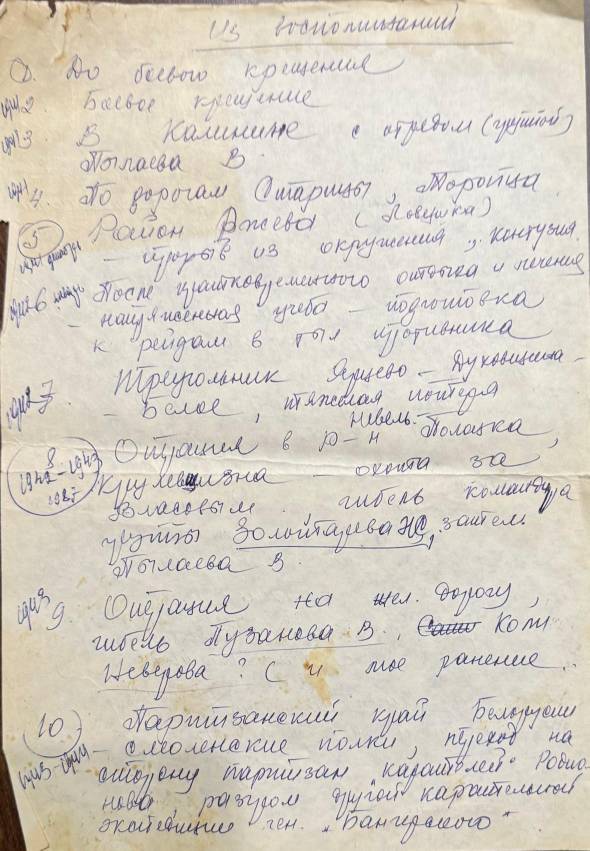 Из воспоминаний
1. До боевого крещения
1941 2. Боевое крещение
1941 3 В Калинине с отрядом (группой)
Пылаева В.
1941 4. По дорогам Старицы, Торопца
5 Район Ржева (Ловушка)
– прорыв из окружения, контузия
6 После кратковременного отдыха и лечения
– напряженная учеба – подготовка
к рейдам в тыл противника
1942 7 Треугольник Ярцево – Духовщина –
– Белое, тяжелая потеря
8 Операция в р-н Невель. Полоцка,
1942 – 1943 – охота за
Власовым. гибель командира
группы Золотарева НС, затем
Пылаева В.
1943 9. Операция на жел. дорогу,
гибель Пузанова В., Коли
Неверова? (и мое ранение..
10 Партизанский край Белорусии
1943-1944 – смоленские полки, переход на
сторону партизан "карателей" Родио-
нова, разгром другой карательной
экспедиции ген. „Бангерского"